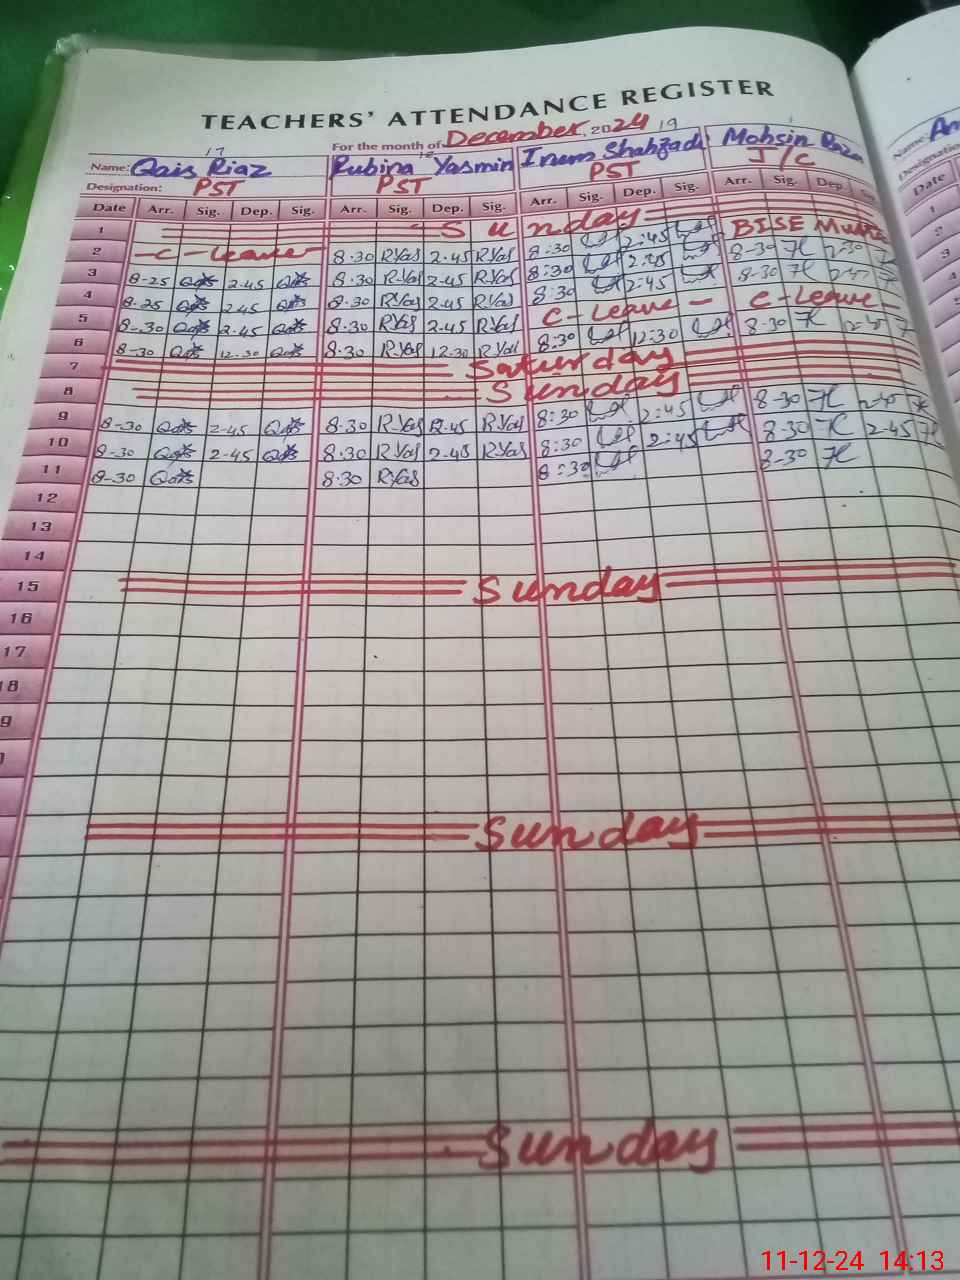 TEACHERS' ATTENDANCE REGISTER
For the month of December, 2024
17 18 19
Name: Qais Riaz Rubina Yasmin Inam Shahzadi Mohsin Raza
Designation: PST PST PST J/C
Date Arr. Sig. Dep. Sig. Arr. Sig. Dep. Sig. Arr. Sig. Dep. Sig. Arr. Sig. Dep.
1 Sunday BISE
2 -C-Leave- 8.30 R.Yas 2.45 R.Yas 8:30 2:45 8-30
3 8-25 Qais 2.45 Qais 8.30 R.Yas 2.45 R.Yas 8:30 2:45 8-30
4 8-25 Qais 2.45 Qais 8.30 R.Yas 2.45 R.Yas 8:30 2:45
5 8-30 Qais 2.45 Qais 8.30 R.Yas 2.45 R.Yas C-Leave- C-Leave-
6 8-30 Qais 12.30 Qais 8.30 R.Yas 12.30 R.Yas 8:30 12:30 8-30
7 Saturday
8 Sunday
9 8-30 Qais 2-45 Qais 8.30 R.Yas 2.45 R.Yas 8:30 2:45 8-30
10 8-30 Qais 2-45 Qais 8.30 R.Yas 2.45 R.Yas 8:30 2:45 8-30 2-45
11 8-30 Qais 8.30 R.Yas 8:30 8-30
12
13
14
15 Sunday
16
17
18
9
Sunday
Sunday
Name: Am
Designation
Date
1
2
3
4
11-12-24 14:13